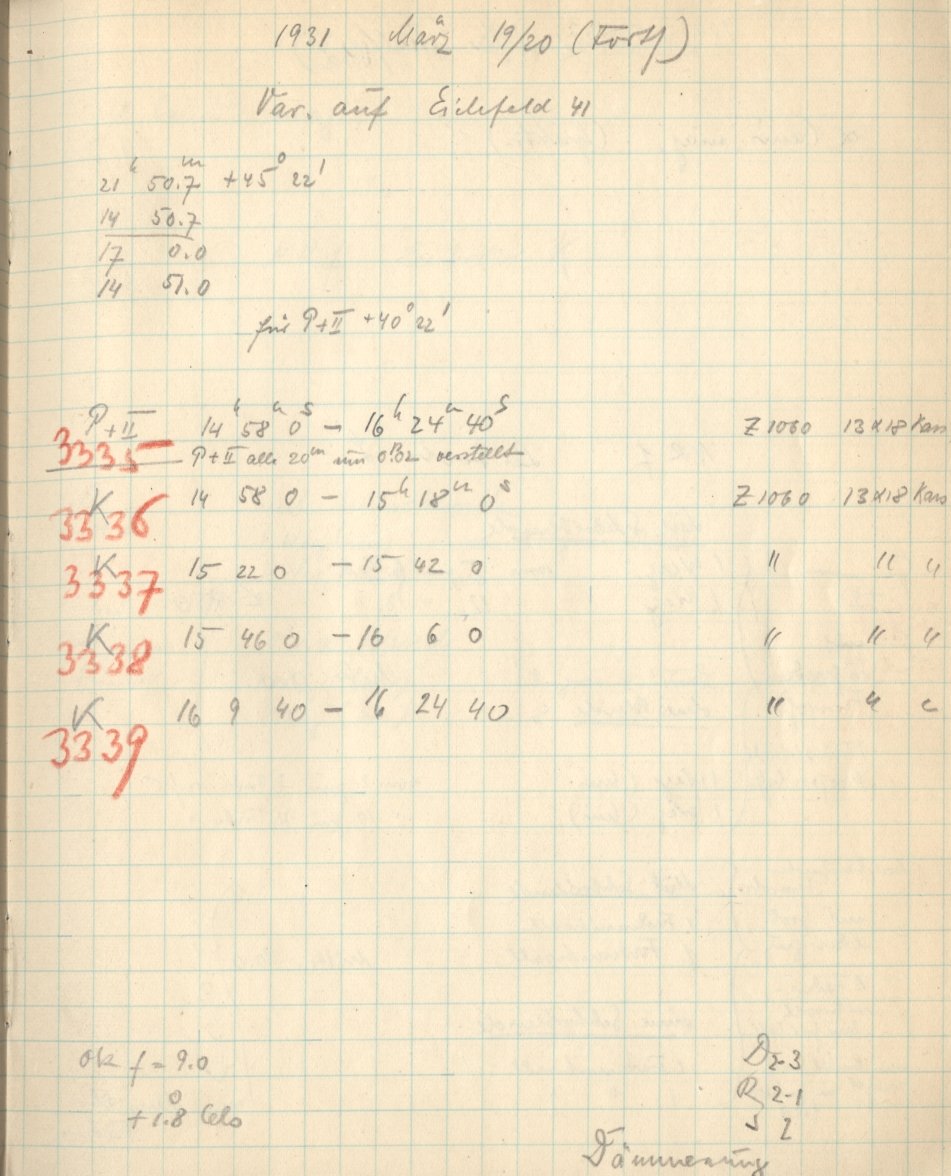 1931 März 19/20 (Forts)
Var. auf Eichfeld 41
21h 50.7m +45° 22'
14 50.7
17 0.0
14 51.0
für P+II +40° 22'
P+II 14h 58m 0s — 16h 24m 40s Z 1060 13×18 Kass
3335 P+II alle 20m um 0.02 verstellt
K 14 58 0 — 15h 18m 0s Z 1060 13×18 Kass
3336
K 15 22 0 — 15 42 0 " " "
3337
K 15 46 0 — 16 6 0 " " "
3338
K 16 9 40 — 16 24 40 " " "
3339
Ok f = 9.0
+1.8° Cels
D 2-3
R 2-1
J 2
Dämmerung